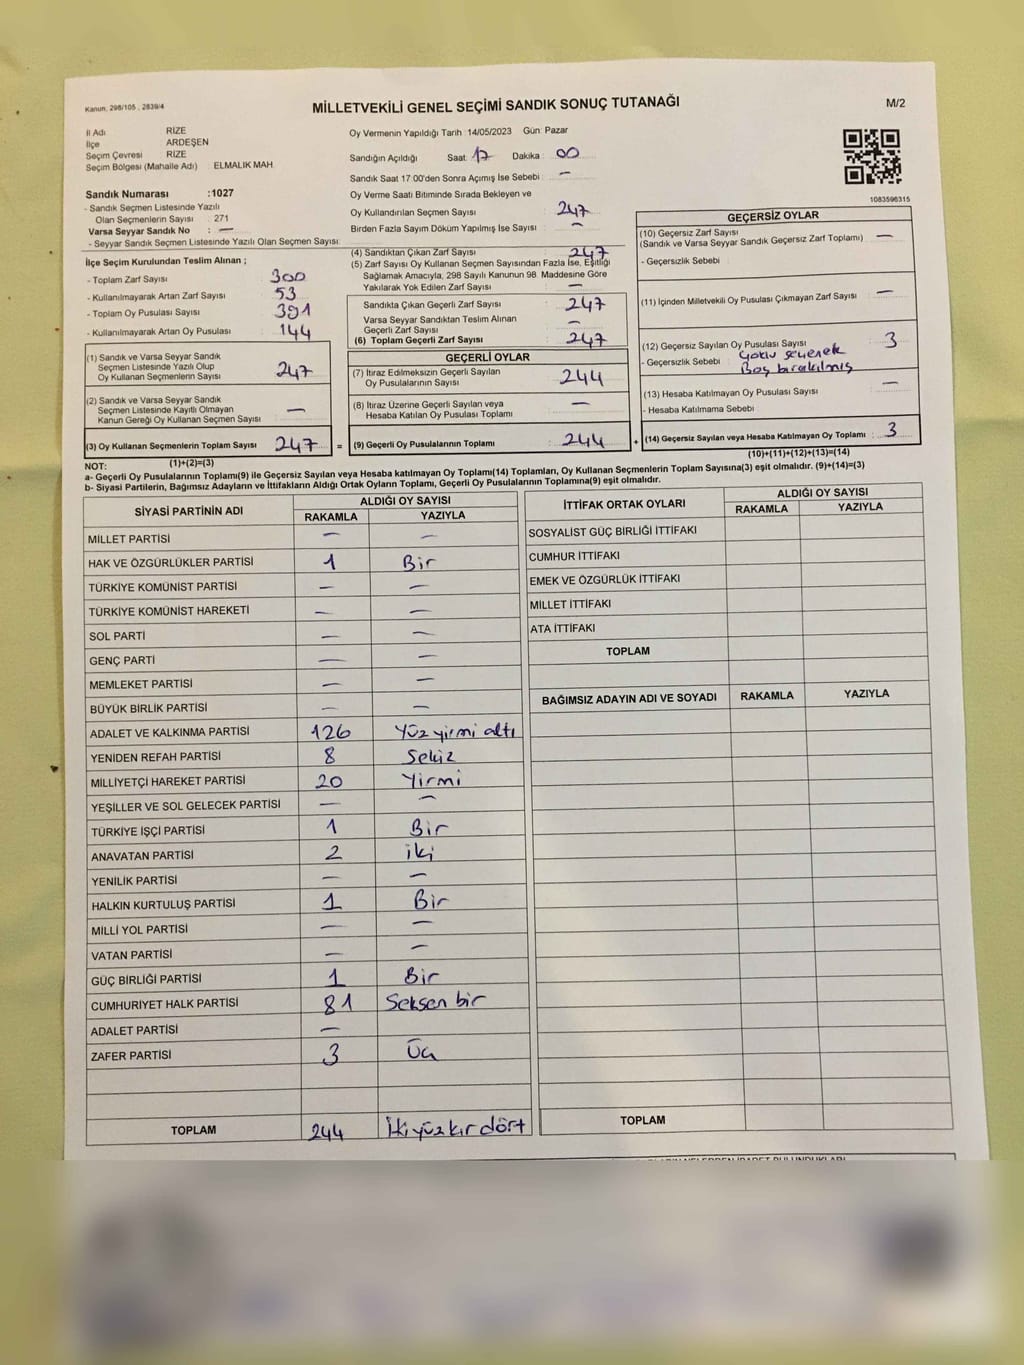 Kanun, 298/105 , 2839/4
MİLLETVEKİLİ GENEL SEÇİMİ SANDIK SONUÇ TUTANAĞI
M/2
İl Adı RİZE
İlçe ARDEŞEN
Seçim Çevresi RİZE
Seçim Bölgesi (Mahalle Adı) ELMALIK MAH.
Sandık Numarası :1027
- Sandık Seçmen Listesinde Yazılı
Olan Seçmenlerin Sayısı : 271
Varsa Seyyar Sandık No : —
- Seyyar Sandık Seçmen Listesinde Yazılı Olan Seçmen Sayısı:
Oy Vermenin Yapıldığı Tarih :14/05/2023 Gün: Pazar
Sandığın Açıldığı Saat: 17 Dakika : 00
Sandık Saat 17:00'den Sonra Açımış İse Sebebi : —
Oy Verme Saati Bitiminde Sırada Bekleyen ve
Oy Kullandırılan Seçmen Sayısı : 247
Birden Fazla Sayım Döküm Yapılmış İse Sayısı : —
1083596315
İlçe Seçim Kurulundan Teslim Alınan ;
- Toplam Zarf Sayısı : 300
- Kullanılmayarak Artan Zarf Sayısı : 53
- Toplam Oy Pusulası Sayısı : 391
- Kullanılmayarak Artan Oy Pusulası : 144
(1) Sandık ve Varsa Seyyar Sandık
Seçmen Listesinde Yazılı Olup
Oy Kullanan Seçmenlerin Sayısı 247
(2) Sandık ve Varsa Seyyar Sandık
Seçmen Listesinde Kayıtlı Olmayan
Kanun Gereği Oy Kullanan Seçmen Sayısı —
(3) Oy Kullanan Seçmenlerin Toplam Sayısı 247 =
(1)+(2)=(3)
(4) Sandıktan Çıkan Zarf Sayısı : 247
(5) Zarf Sayısı Oy Kullanan Seçmen Sayısından Fazla İse, Eşitliği
Sağlamak Amacıyla, 298 Sayılı Kanunun 98. Maddesine Göre
Yakılarak Yok Edilen Zarf Sayısı : —
Sandıkta Çıkan Geçerli Zarf Sayısı : 247
Varsa Seyyar Sandıktan Teslim Alınan
Geçerli Zarf Sayısı : —
(6) Toplam Geçerli Zarf Sayısı : 247
GEÇERLİ OYLAR
(7) İtiraz Edilmeksizin Geçerli Sayılan
Oy Pusulalarının Sayısı : 244
(8) İtiraz Üzerine Geçerli Sayılan veya
Hesaba Katılan Oy Pusulası Toplamı : —
(9) Geçerli Oy Pusulalarının Toplamı : 244 +
GEÇERSİZ OYLAR
(10) Geçersiz Zarf Sayısı : —
(Sandık ve Varsa Seyyar Sandık Geçersiz Zarf Toplamı)
- Geçersizlik Sebebi :
(11) İçinden Milletvekili Oy Pusulası Çıkmayan Zarf Sayısı : —
(12) Geçersiz Sayılan Oy Pusulası Sayısı : 3
- Geçersizlik Sebebi : Boş bırakılmış
(13) Hesaba Katılmayan Oy Pusulası Sayısı : —
- Hesaba Katılmama Sebebi :
(14) Geçersiz Sayılan veya Hesaba Katılmayan Oy Toplamı : 3
(10)+(11)+(12)+(13)=(14)
NOT:
a- Geçerli Oy Pusulalarının Toplamı(9) ile Geçersiz Sayılan veya Hesaba katılmayan Oy Toplamı(14) Toplamları, Oy Kullanan Seçmenlerin Toplam Sayısına(3) eşit olmalıdır. (9)+(14)=(3)
b- Siyasi Partilerin, Bağımsız Adayların ve İttifakların Aldığı Ortak Oyların Toplamı, Geçerli Oy Pusulalarının Toplamına(9) eşit olmalıdır.
SİYASİ PARTİNİN ADI ALDIĞI OY SAYISI
RAKAMLA YAZIYLA
MİLLET PARTİSİ — —
HAK VE ÖZGÜRLÜKLER PARTİSİ 1 Bir
TÜRKİYE KOMÜNİST PARTİSİ — —
TÜRKİYE KOMÜNİST HAREKETİ — —
SOL PARTİ — —
GENÇ PARTİ — —
MEMLEKET PARTİSİ — —
BÜYÜK BİRLİK PARTİSİ — —
ADALET VE KALKINMA PARTİSİ 126 Yüz yirmi altı
YENİDEN REFAH PARTİSİ 8 Sekiz
MİLLİYETÇİ HAREKET PARTİSİ 20 Yirmi
YEŞİLLER VE SOL GELECEK PARTİSİ — —
TÜRKİYE İŞÇİ PARTİSİ 1 Bir
ANAVATAN PARTİSİ 2 iki
YENİLİK PARTİSİ — —
HALKIN KURTULUŞ PARTİSİ 1 Bir
MİLLİ YOL PARTİSİ — —
VATAN PARTİSİ — —
GÜÇ BİRLİĞİ PARTİSİ 1 Bir
CUMHURİYET HALK PARTİSİ 81 Seksen bir
ADALET PARTİSİ —
ZAFER PARTİSİ 3 Üç
TOPLAM 244 İkiyüzkırdört
İTTİFAK ORTAK OYLARI ALDIĞI OY SAYISI
RAKAMLA YAZIYLA
SOSYALİST GÜÇ BİRLİĞİ İTTİFAKI
CUMHUR İTTİFAKI
EMEK VE ÖZGÜRLÜK İTTİFAKI
MİLLET İTTİFAKI
ATA İTTİFAKI
TOPLAM
BAĞIMSIZ ADAYIN ADI VE SOYADI RAKAMLA YAZIYLA
TOPLAM